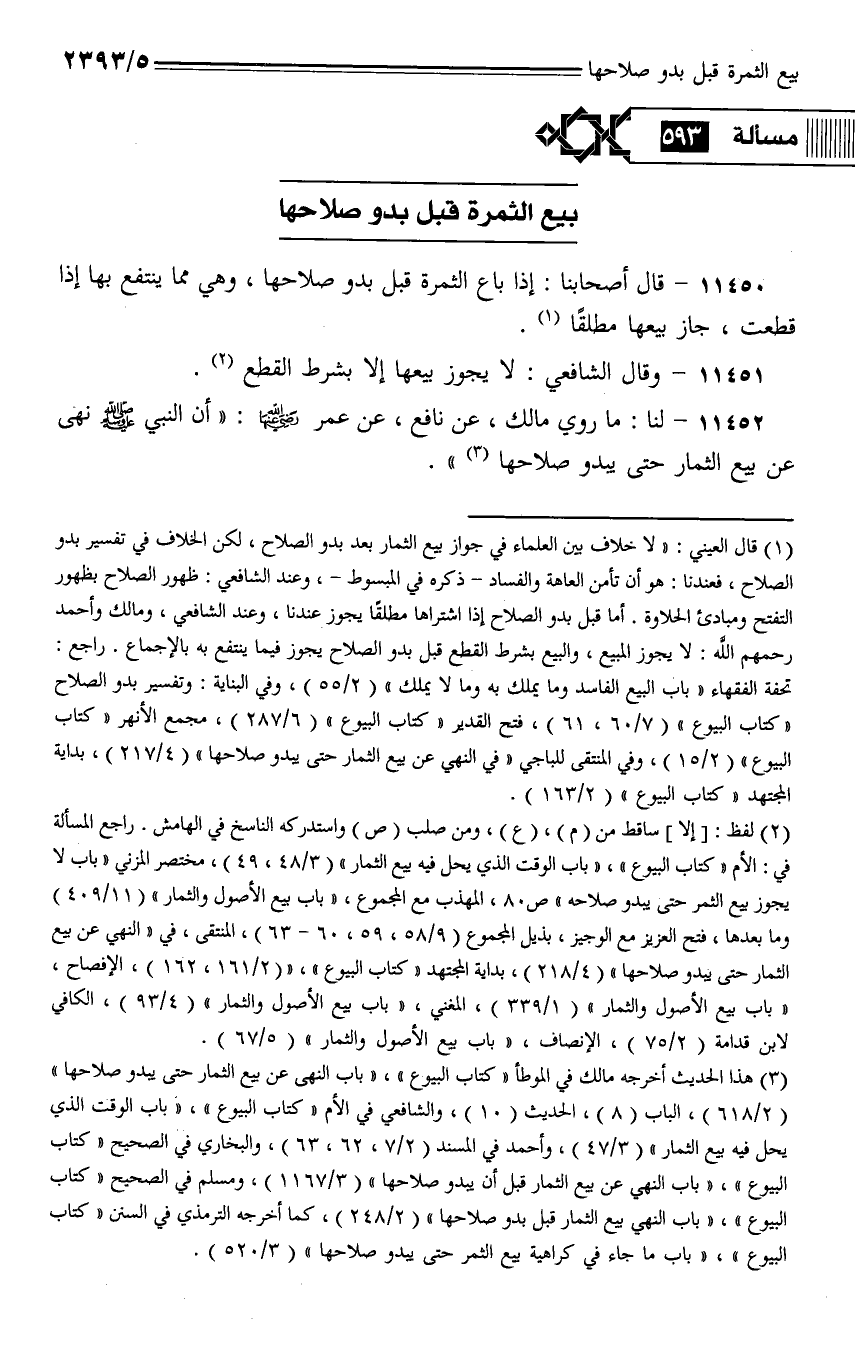 بيع الثمرة قبل بدو صلاحها ٢٣٩٣/٥
مسألة ٥٩٣
بيع الثمرة قبل بدو صلاحها
١١٤٥٠ - قال أصحابنا : إذا باع الثمرة قبل بدو صلاحها ، وهي مما ينتفع بها إذا
قطعت ، جاز بيعها مطلقًا (١) .
١١٤٥١ - وقال الشافعي : لا يجوز بيعها إلا بشرط القطع (٢) .
١١٤٥٢ - لنا : ما روي مالك ، عن نافع ، عن عمر رضي الله عنهما : « أن النبي ﷺ نهى
عن بيع الثمار حتى يبدو صلاحها (٣) » .
(١) قال العيني : « لا خلاف بين العلماء في جواز بيع الثمار بعد بدو الصلاح ، لكن الخلاف في تفسير بدو
الصلاح ، فعندنا : هو أن تأمن العاهة والفساد - ذكره في المبسوط - ، وعند الشافعي : ظهور الصلاح بظهور
التفتح ومبادئ الحلاوة . أما قبل بدو الصلاح إذا اشتراها مطلقًا يجوز عندنا ، وعند الشافعي ، ومالك وأحمد
رحمهم اللَّه : لا يجوز المبيع ، والبيع بشرط القطع قبل بدو الصلاح يجوز فيما ينتفع به بالإجماع . راجع :
تحفة الفقهاء « باب البيع الفاسد وما يملك به وما لا يملك » ( ٥٥/٢ ) ، وفي البناية : وتفسير بدو الصلاح
« كتاب البيوع » ( ٦٠/٧ ، ٦١ ) ، فتح القدير « كتاب البيوع » ( ٢٨٧/٦ ) ، مجمع الأنهر « كتاب
البيوع» ( ١٥/٢ ) ، وفي المنتقى للباجي « في النهي عن بيع الثمار حتى يبدو صلاحها » ( ٢١٧/٤ ) ، بداية
المجتهد « كتاب البيوع » ( ١٦٣/٢ ) .
(٢) لفظ : [ إلا ] ساقط من ( م ) ، ( ع ) ، ومن صلب ( ص ) واستدركه الناسخ في الهامش . راجع المسألة
في : الأم « كتاب البيوع » ، « باب الوقت الذي يحل فيه بيع الثمار » ( ٤٨/٣ ، ٤٩ ) ، مختصر المزني « باب لا
يجوز بيع الثمر حتى يبدو صلاحه » ص٨٠ ، المهذب مع المجموع ، « باب بيع الأصول والثمار » ( ٤٠٩/١١ )
وما بعدها ، فتح العزيز مع الوجيز ، بذيل المجموع ( ٥٨/٩ ، ٥٩ ، ٦٠ - ٦٣ ) ، المنتقى ، في « النهي عن بيع
الثمار حتى يبدو صلاحها » ( ٢١٨/٤ ) ، بداية المجتهد « كتاب البيوع » ، «( ١٦١/٢ ، ١٦٢ ) ، الإفصاح ،
« باب بيع الأصول والثمار » ( ٣٣٩/١ ) ، المغني ، « باب بيع الأصول والثمار » ( ٩٣/٤ ) ، الكافي
لابن قدامة ( ٧٥/٢ ) ، الإنصاف ، « باب بيع الأصول والثمار » ( ٦٧/٥ ) .
(٣) هذا الحديث أخرجه مالك في الموطأ « كتاب البيوع » ، « باب النهى عن بيع الثمار حتى يبدو صلاحها »
( ٦١٨/٢ ) ، الباب ( ٨ ) ، الحديث ( ١٠ ) ، والشافعي في الأم « كتاب البيوع » ، « باب الوقت الذي
يحل فيه بيع الثمار » ( ٤٧/٣ ) ، وأحمد في المسند ( ٧/٢ ، ٦٢ ، ٦٣ ) ، والبخاري في الصحيح « كتاب
البيوع » ، « باب النهي عن بيع الثمار قبل أن يبدو صلاحها » ( ١١٦٧/٣ ) ، ومسلم في الصحيح « كتاب
البيوع » ، « باب النهي بيع الثمار قبل بدو صلاحها » ( ٢٤٨/٢ ) ، كما أخرجه الترمذي في السنن « كتاب
البيوع » ، « باب ما جاء في كراهية بيع الثمر حتى يبدو صلاحها » ( ٥٢٠/٣ ) .